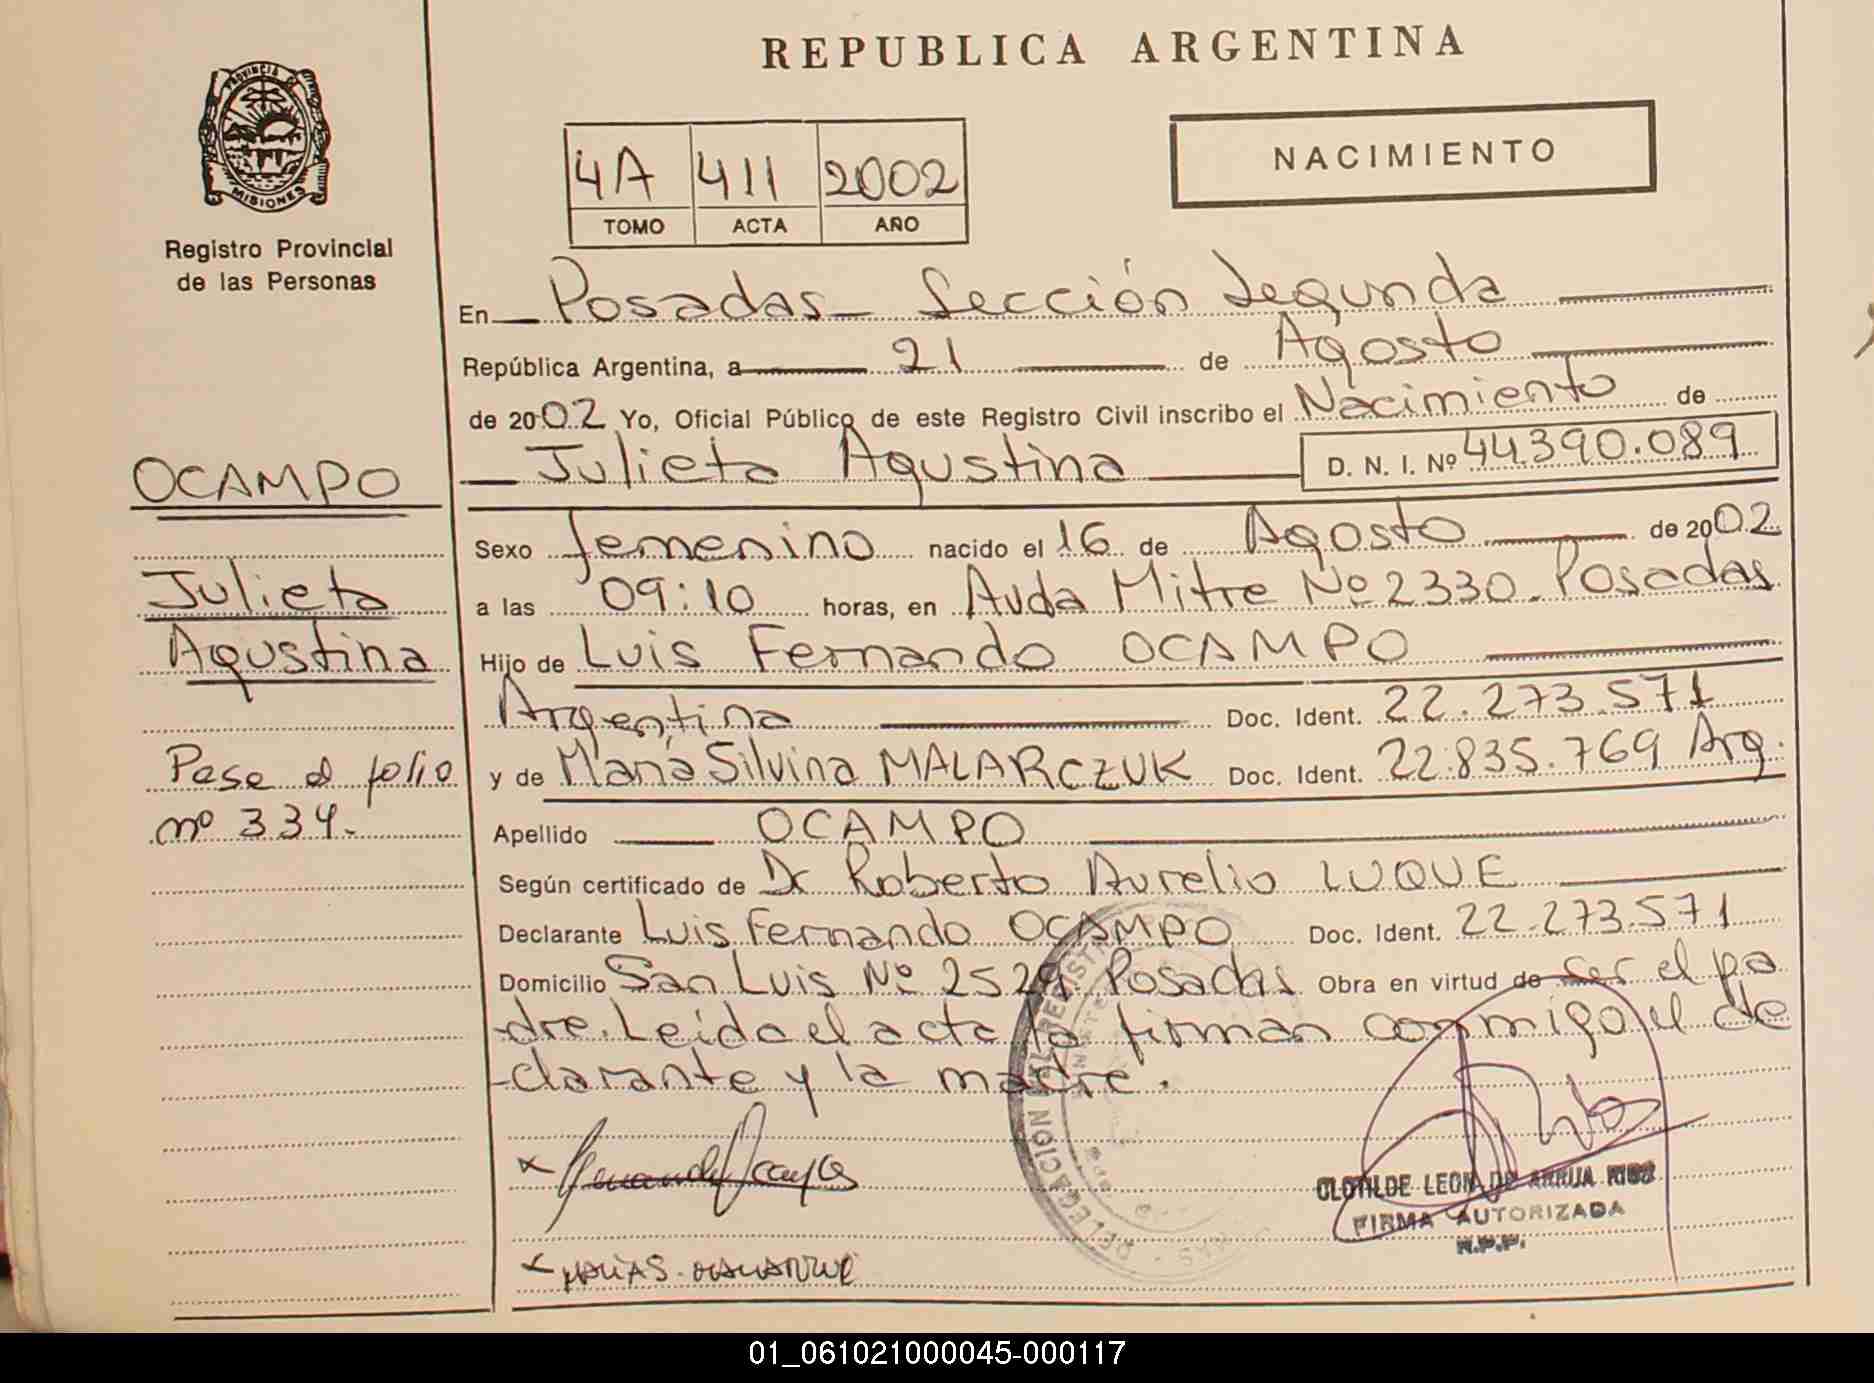 REPUBLICA ARGENTINA
PROVINCIA DE
MISIONES
Registro Provincial
de las Personas
4A 411 2002
TOMO ACTA AÑO
NACIMIENTO
En Posadas - Sección Segunda
República Argentina, a 21 de Agosto
de 2002 Yo, Oficial Público de este Registro Civil inscribo el Nacimiento de
Julieta Agustina D. N. I. Nº 44.390.089
Sexo femenino nacido el 16 de Agosto de 2002
a las 09:10 horas, en Avda Mitre Nº 2330. Posadas
Hijo de Luis Fernando OCAMPO
Argentina Doc. Ident. 22.273.571
y de María Silvina MALARCZUK Doc. Ident. 22.835.769 Arg.
Apellido OCAMPO
Según certificado de Dr Roberto Aurelio LUQUE
Declarante Luis Fernando OCAMPO Doc. Ident. 22.273.571
Domicilio San Luis Nº 2529 Posadas Obra en virtud de ser el pa
dre. Leída el acta la firman conmigo el de
clarante y la madre.
OCAMPO
Julieta
Agustina
Pase al folio
nº 334.
DELEGACION DEL REGIST
CLOTILDE LEON DE ARRUA RIOS
FIRMA AUTORIZADA
R.P.P.
01_061021000045-000117